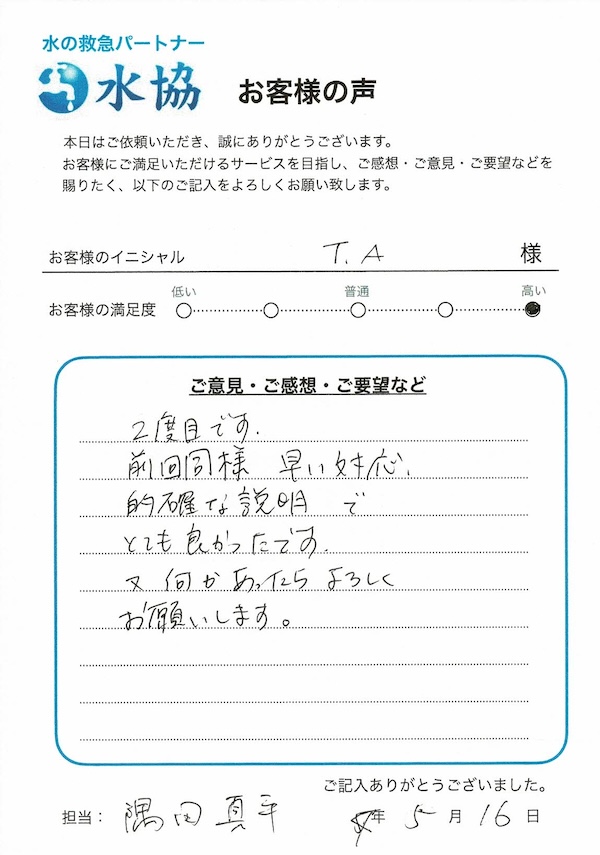 水の救急パートナー
水協 お客様の声
本日はご依頼いただき、誠にありがとうございます。
お客様にご満足いただけるサービスを目指し、ご感想・ご意見・ご要望などを
賜りたく、以下のご記入をよろしくお願い致します。
お客様のイニシャル T.A 様
低い 普通 高い
お客様の満足度
ご意見・ご感想・ご要望など
2度目です.
前回同様 早い対応.
的確な説明 で
とても良かったです.
又 何かあったら よろしく
お願いします。
ご記入ありがとうございました。
担当: 隅田 真平 年 5 月 16 日